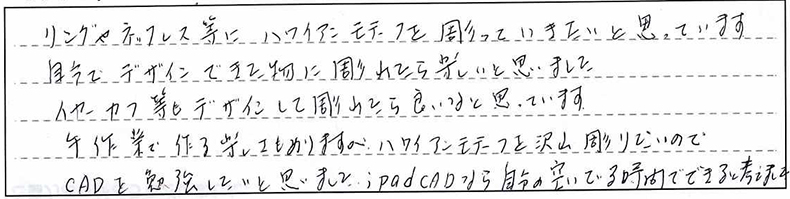 リングやネックレス等に ハワイアンモチーフを彫っていきたいと思っています
自分で デザインできた物に彫れたら楽しいと思いました
イヤーカフ等もデザインして彫れたら良いなと思っています
手作業で作る楽しさもありますが、ハワイアンモチーフを沢山彫りたいので
CADを勉強したいと思いました。ipadCADなら自分の空いてる時間でできると考えました